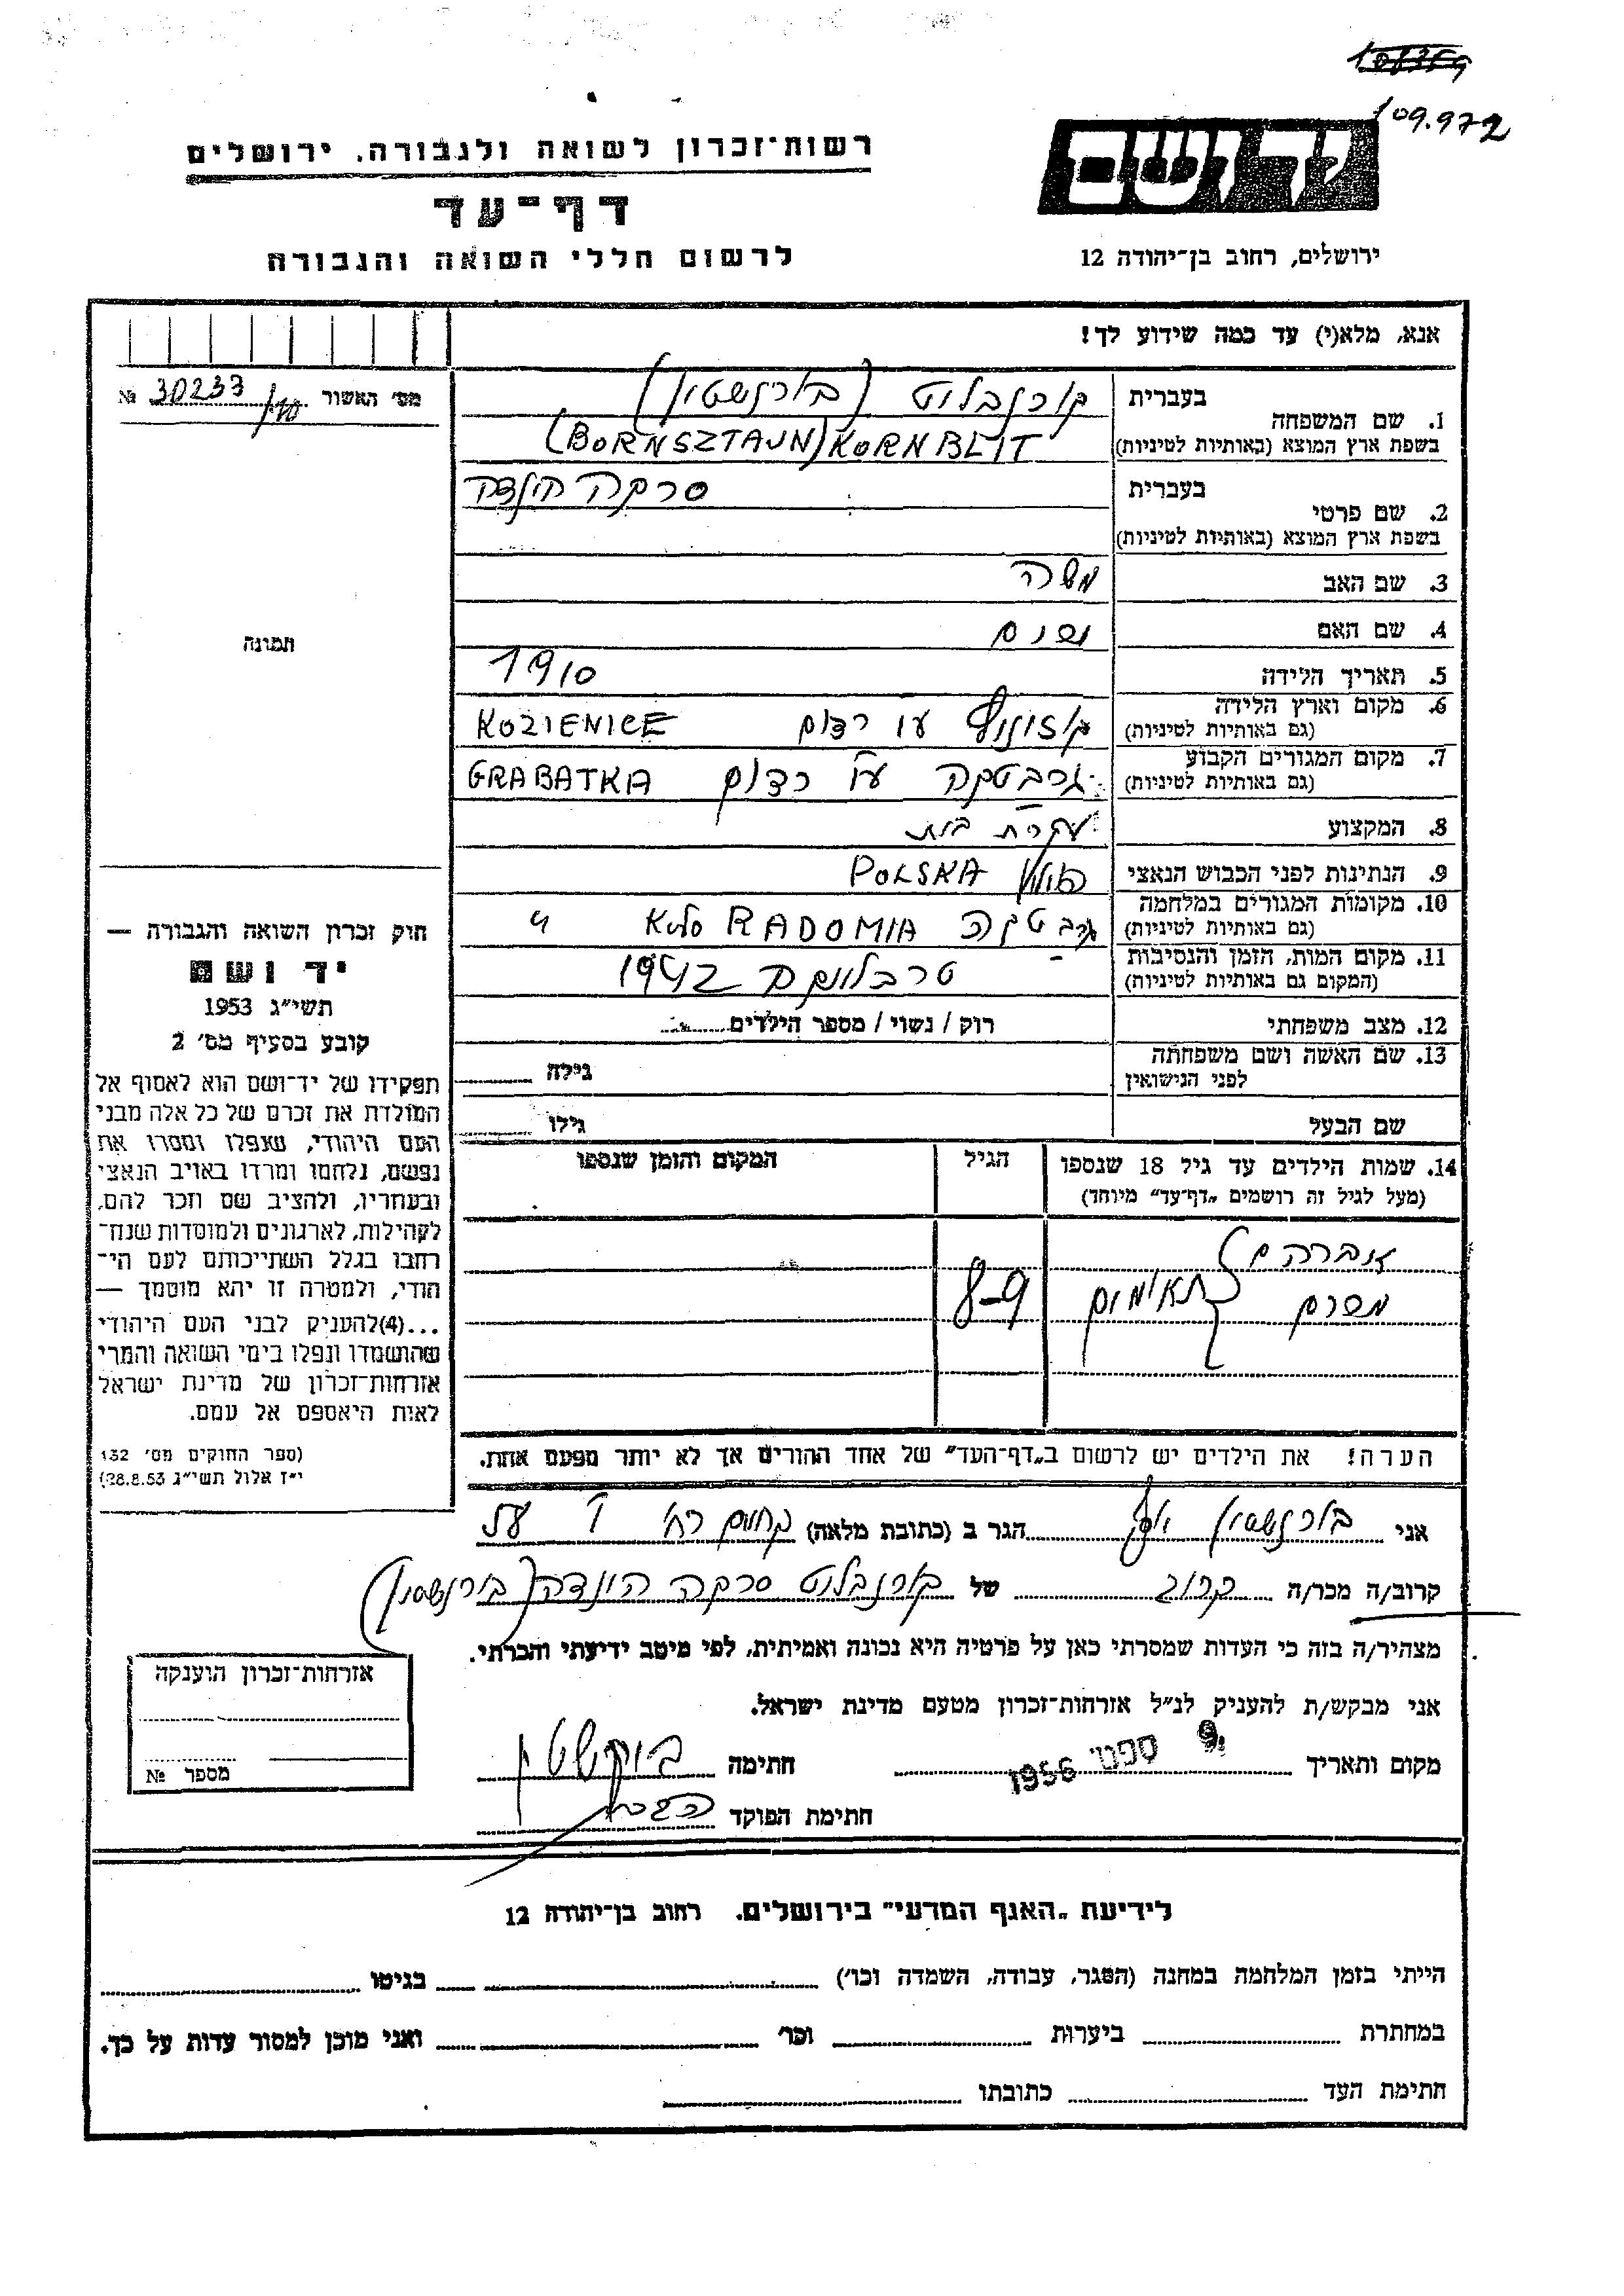 109.972
רשות־זכרון לשואה ולגבורה. ירושלים
דף־עד
לרשום חללי השואה והגבורה
יד ושם
ירושלים, רחוב בן־יהודה 12
אנא, מלא(י) עד כמה שידוע לך!
מס׳ האשור 30233/10 №
בעברית קורנבליט (בורנשטין)
1. שם המשפחה
בשפת ארץ המוצא (באותיות לטיניות) KORNBLIT (BORNSZTAJN)
בעברית סרקה הינדה
2. שם פרטי
בשפת ארץ המוצא (באותיות לטיניות)
3. שם האב משה
4. שם האם
5. תאריך הלידה 1910
6. מקום וארץ הלידה
(גם באותיות לטיניות) ע״י רדום KOZIENICE
7. מקום המגורים הקבוע
(גם באותיות לטיניות) גרבטקה ע״י רדום GRABATKA
8. המקצוע עקרת בית
9. הנתינות לפני הכבוש הנאצי POLSKA
10. מקומות המגורים במלחמה
(גם באותיות לטיניות) גרבטקה KOLO RADOMIA
11. מקום המות, הזמן והנסיבות
(המקום גם באותיות לטיניות) טרבלינקה 1942
12. מצב משפחתי רוק / נשוי / מספר הילדים
13. שם האשה ושם משפחתה
לפני הנישואין גילה
שם הבעל גילו
14. שמות הילדים עד גיל 18 שנספו הגיל המקום והזמן שנספו
(מעל לגיל זה רושמים „דף־עד״ מיוחד)
אברהם
מרים תאומים 8-9
הערה! את הילדים יש לרשום ב„דף־העד״ של אחד ההורים אך לא יותר מפעם אחת.
תמונה
חוק זכרון השואה והגבורה —
יד ושם
תשי״ג 1953
קובע בסעיף מס׳ 2
תפקידו של יד־ושם הוא לאסוף אל
המולדת את זכרם של כל אלה מבני
העם היהודי, שנפלו ומסרו את
נפשם, נלחמו ומרדו באויב הנאצי
ובעוזריו, ולהציב שם וזכר להם,
לקהילות, לארגונים ולמוסדות שנח־
רבו בגלל השתייכותם לעם הי־
הודי, ולמטרה זו יהא מוסמך —
...(4)להעניק לבני העם היהודי
שהושמדו ונפלו בימי השואה והמרי
אזרחות־זכרון של מדינת ישראל
לאות היאספם אל עמם.
(ספר החוקים מס׳ 132
י״ז אלול תשי״ג 28.8.53)
אני בורנשטין הגר ב (כתובת מלאה)
קרוב/ה מכר/ה קרוב של קורנבליט סרקה הינדה (בורנשטין)
מצהיר/ה בזה כי העדות שמסרתי כאן על פרטיה היא נכונה ואמיתית, לפי מיטב ידיעתי והכרתי.
אני מבקש/ת להעניק לנ״ל אזרחות־זכרון מטעם מדינת ישראל.
מקום ותאריך 9 ספט׳ 1956 חתימה בורנשטין
חתימת הפוקד
אזרחות־זכרון הוענקה
מספר №
לידיעת „האגף המדעי״ בירושלים. רחוב בן־יהודה 12
הייתי בזמן המלחמה במחנה (הסגר, עבודה, השמדה וכו׳) בגיטו
במחתרת ביערות וכו׳ ואני מוכן למסור עדות על כך.
חתימת העד כתובתו